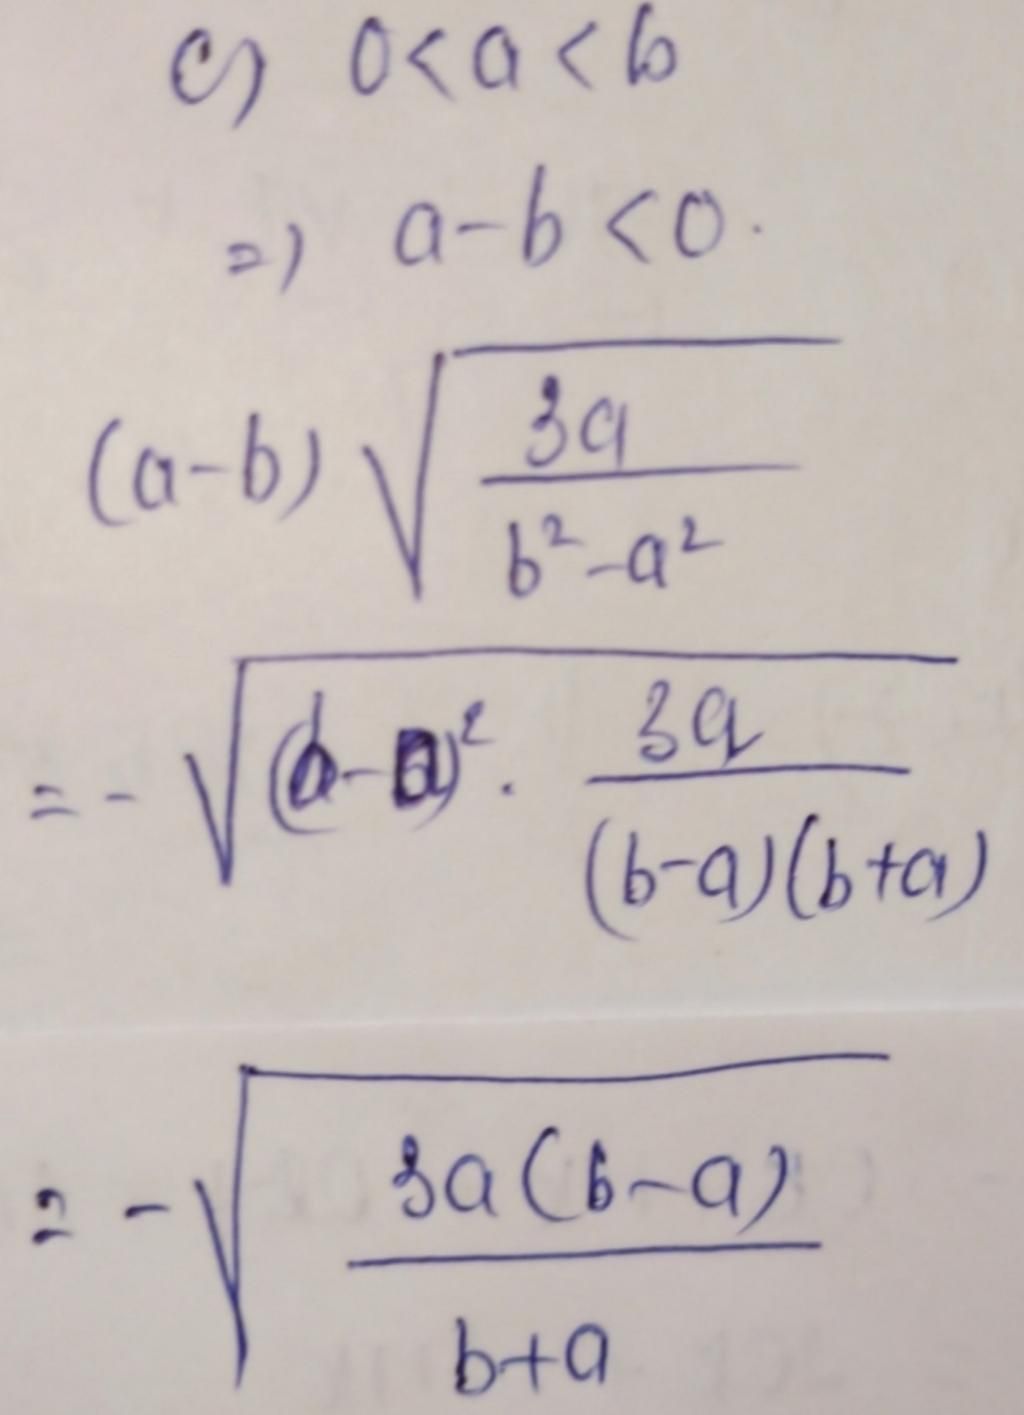 c) 0 < a < b
=) a - b < 0.
(a-b) √(3a / (b² - a²))
= - √((b-a)² . 3a / ((b-a)(b+a)))
= - √(3a(b-a) / (b+a))